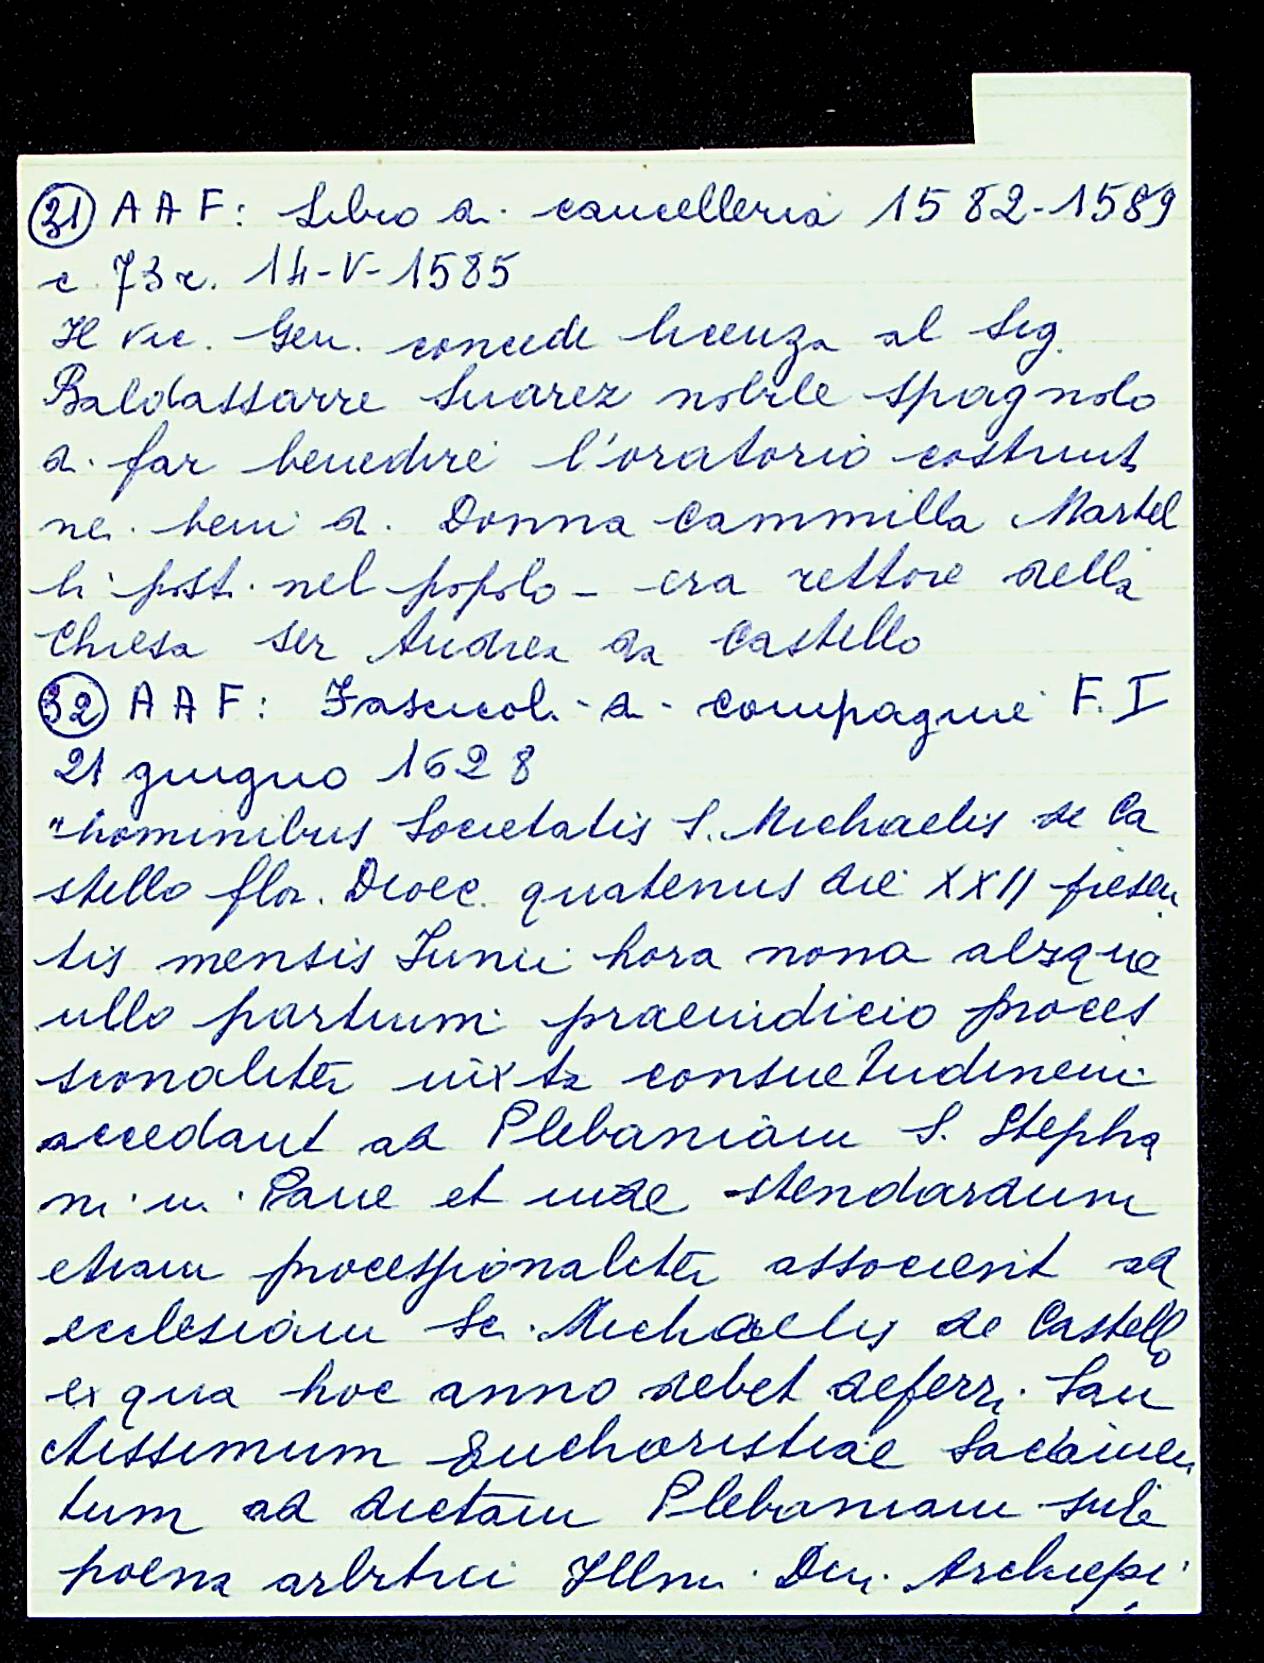 31 A A F: Libro di cancelleria 1582-1589
c. 73 r. 14-V-1585
Il Vic. Gen. concede licenza al Sig.
Baldassarre Suarez nobile spagnolo
a far benedire l'oratorio costruit
nei beni di Donna Cammilla Martel
li posti nel popolo - era rettore della
Chiesa ser Andrea da Castello
32 A A F: Fascicoli di compagnie F. I
21 giugno 1628
"hominibus Societatis S. Michaelis de Ca
stello flor. Dioec. quatenus die XXII presen
tis mensis Iunii hora nona absque
ullo partium praeiudicio proces
sionaliter iuxta consuetudinem
accedant ad Plebaniam S. Stepha
ni in Pane et inde stendardum
etiam processionaliter associent ad
ecclesiam Sci. Michaelis de Castello
ex qua hoc anno debet deferri San
ctissimum Eucharistiae Sacramen
tum ad dictam Plebaniam sub
poena arbitrii Illmi. Dni. Archiepi